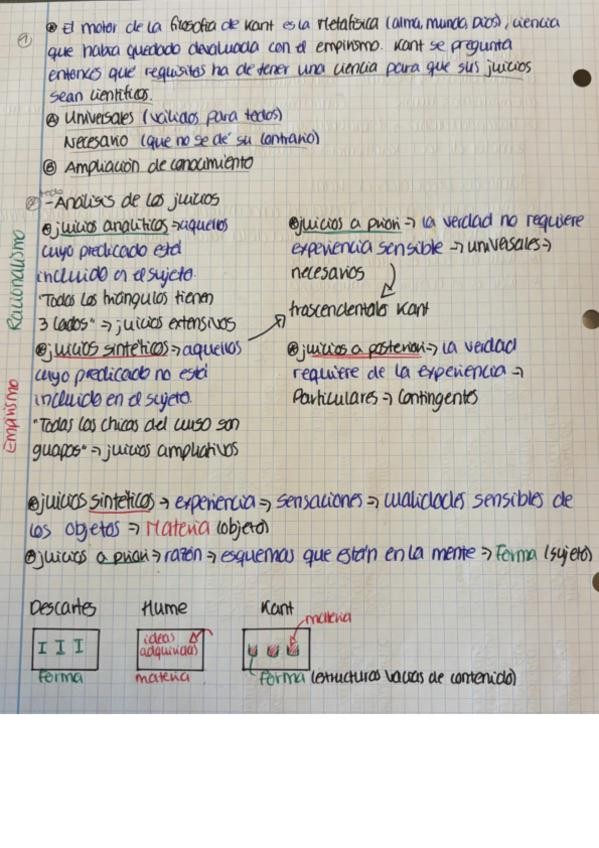 ① ⊛ El motor de la filosofía de Kant es la Metafísica (alma, mundo, Dios), ciencia
que había quedado devaluada con el empirismo. Kant se pregunta
entonces que requisitos ha de tener una ciencia para que sus juicios
sean científicos.
Ⓐ Universales (válidos para todos)
Necesario (que no se dé su contrario)
Ⓑ Ampliación de conocimiento
② -Análisis de los juicios
Racionalismo
⊛ juicios analíticos → aquellos
cuyo predicado está
incluido en el sujeto.
"Todos los triángulos tienen
3 lados" → juicios extensivos
Empirismo
⊛ juicios sintéticos → aquellos
cuyo predicado no está
incluido en el sujeto.
"Todas las chicas del curso son
guapas" → juicios ampliativos
⊛ juicios a priori → la verdad no requiere
experiencia sensible → universales →
necesarios
trascendentales Kant
⊛ juicios a posteriori → la verdad
requiere de la experiencia →
Particulares → Contingentes
⊛ juicios sintéticos → experiencia → sensaciones → cualidades sensibles de
los objetos → Materia (objeto)
⊛ juicios a priori → razón → esquemas que están en la mente → Forma (sujeto)
Descartes Hume Kant
materia
I I I
ideas
adquiridas
forma materia forma (estructuras vacías de contenido)